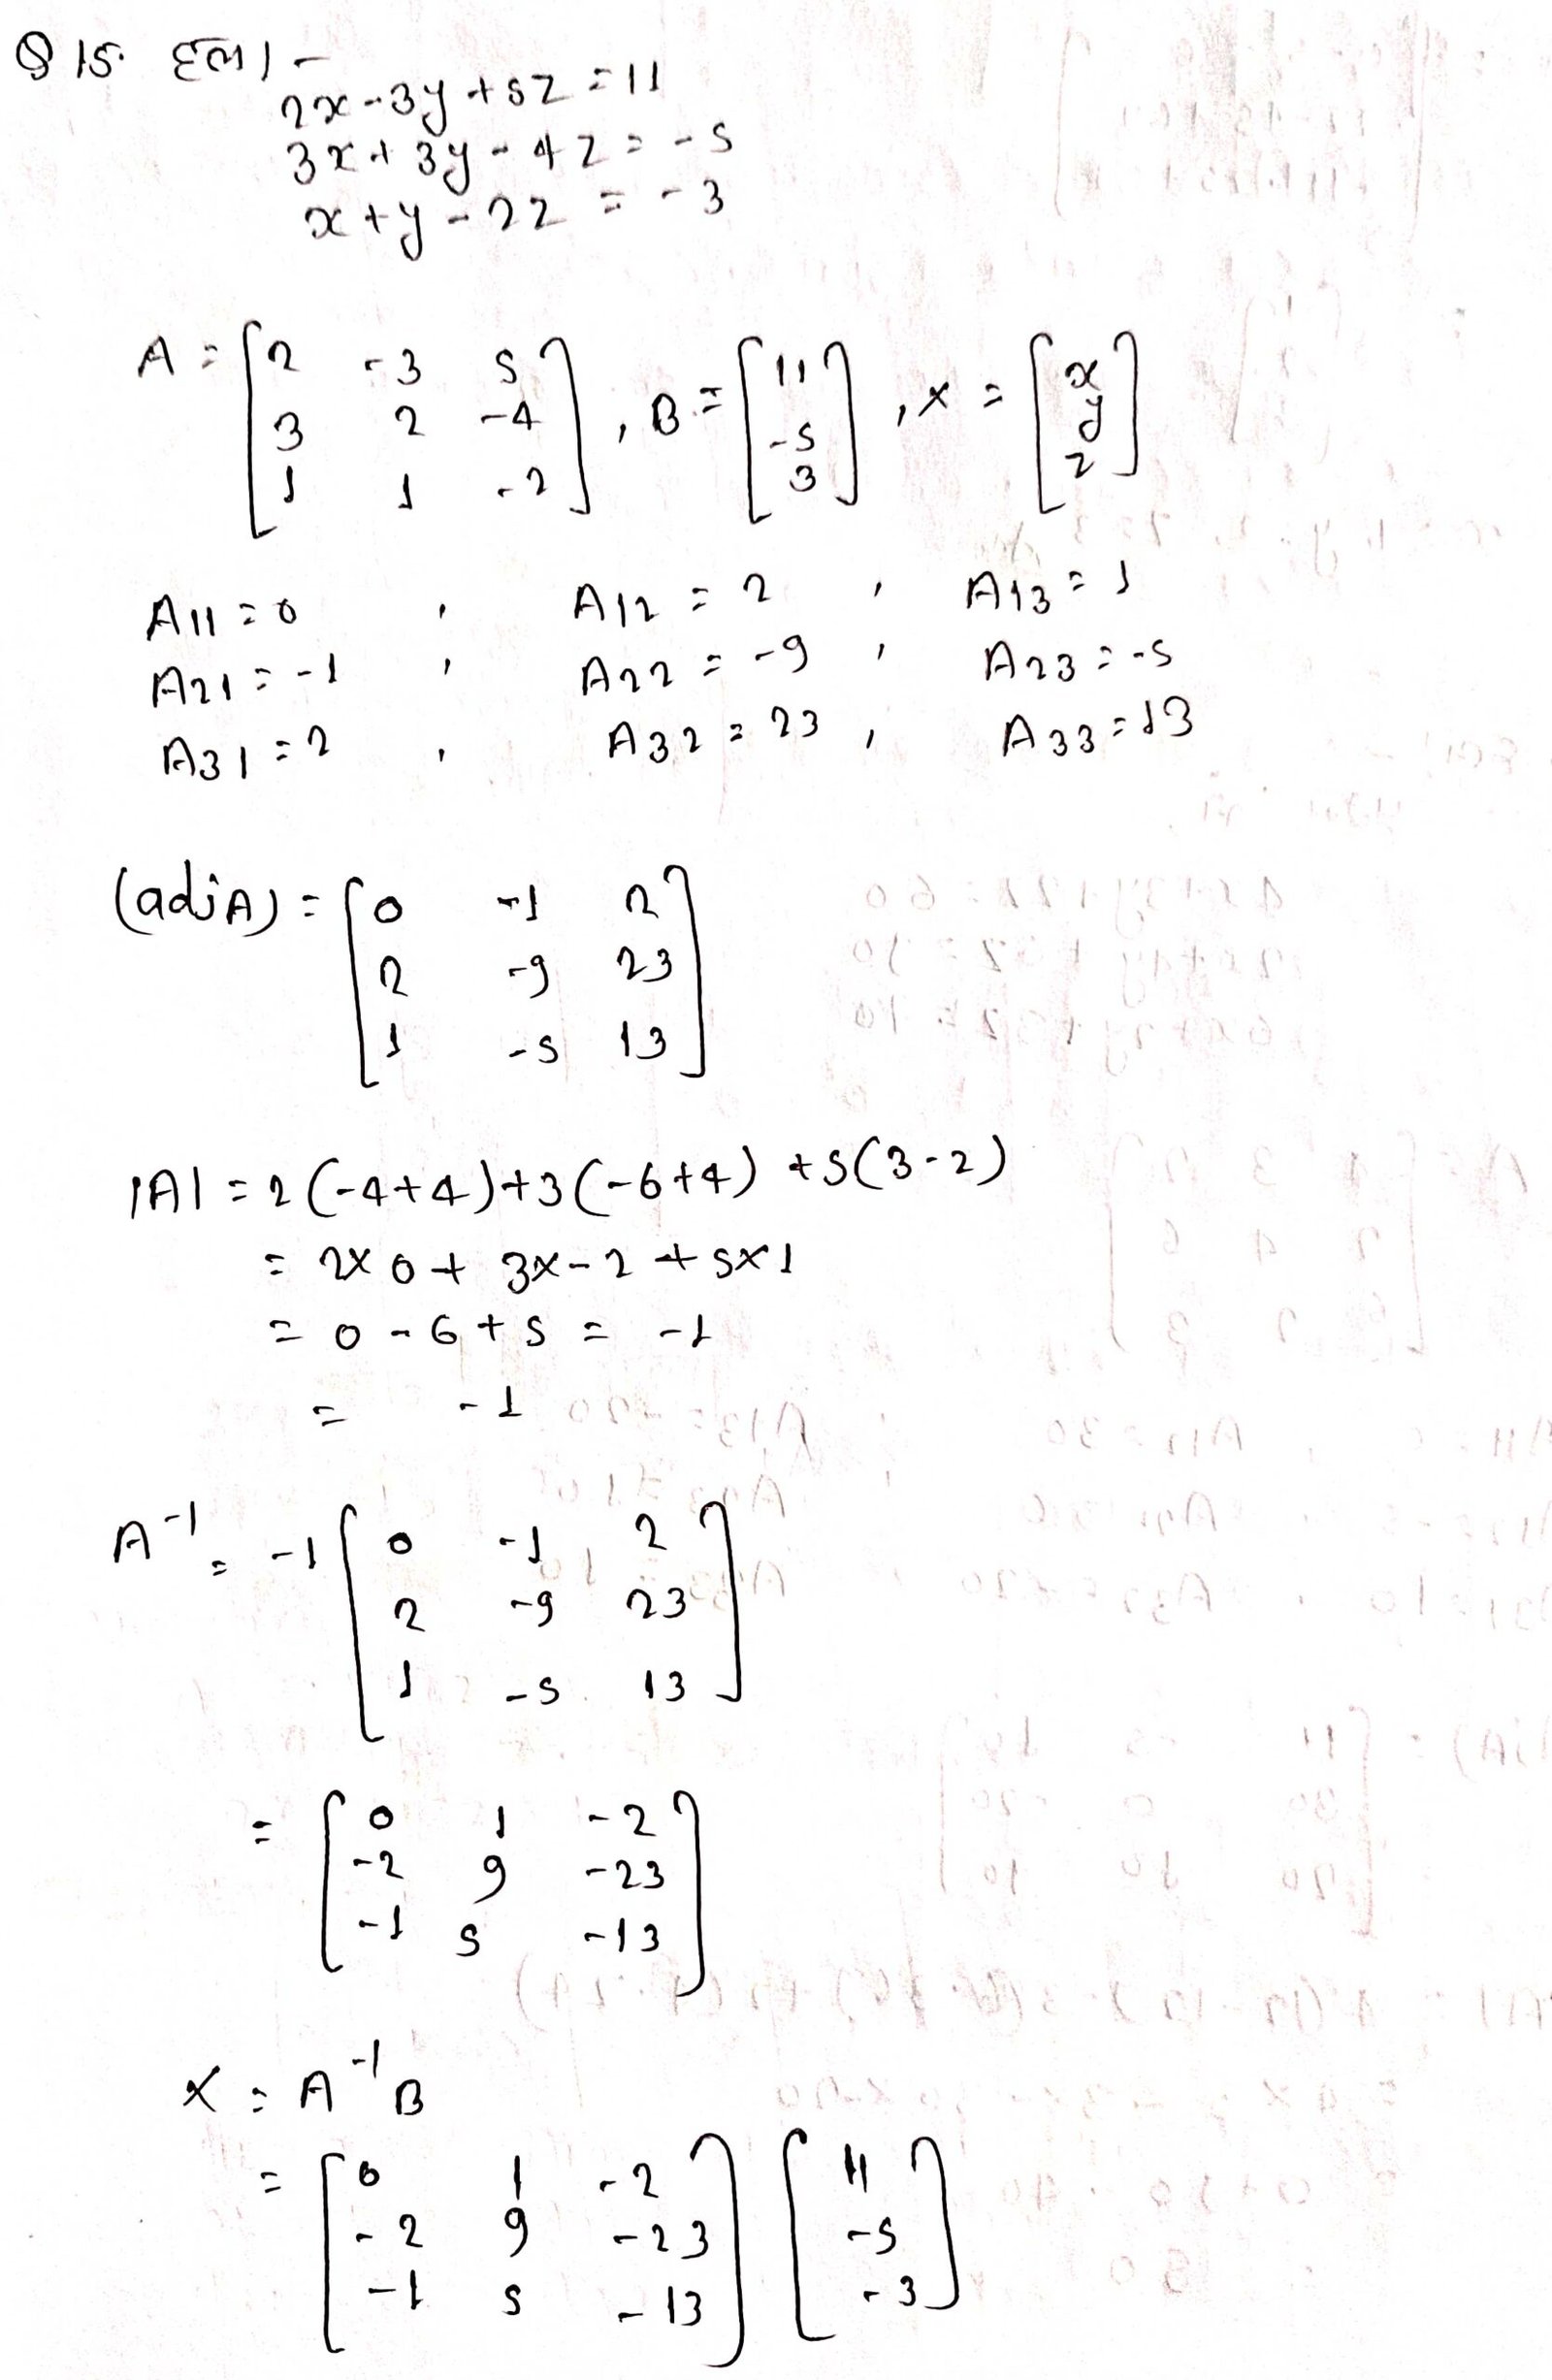 Q 15. हल।-
2x-3y+5z=11
3x+3y-4z=-5
x+y-2z=-3
A=[2 -3 5
3 2 -4
1 1 -2], B=[11
-5
3], X=[x
y
z]
A11=0, A12=2, A13=1
A21=-1, A22=-9, A23=-5
A31=2, A32=23, A33=13
(adjA)=[0 -1 2
2 -9 23
1 -5 13]
|A|=2(-4+4)+3(-6+4)+5(3-2)
=2×0+3×-2+5×1
=0-6+5=-1
= -1
A⁻¹=-1[0 -1 2
2 -9 23
1 -5 13]
=[0 1 -2
-2 9 -23
-1 5 -13]
X=A⁻¹B
=[0 1 -2
-2 9 -23
-1 5 -13][11
-5
-3]